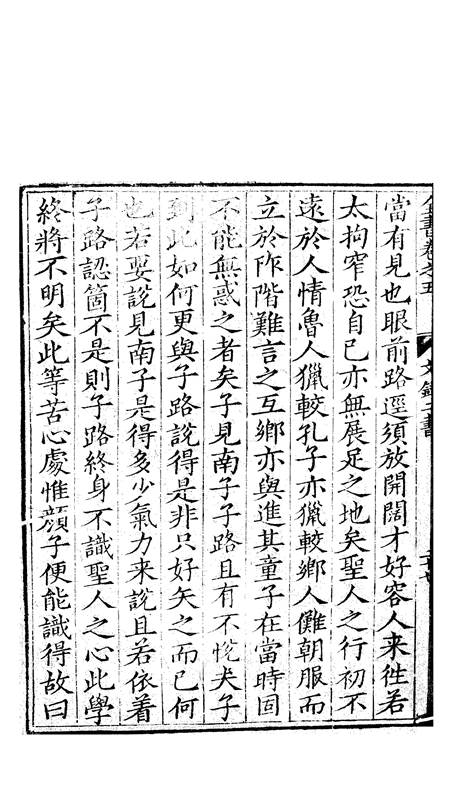 全書卷之五　文錄二書
當有見也眼前路逕須放開闊才好容人来徃若
太拘窄恐自己亦無展足之地矣聖人之行初不
遠於人情魯人獵較孔子亦獵較鄉人儺朝服而
立於阼階難言之互鄉亦與進其童子在當時固
不能無惑之者矣子見南子子路且有不悅夫子
到此如何更與子路說得是非只好矢之而已何
也若要說見南子是得多少氣力来說且若依着
子路認箇不是則子路終身不識聖人之心此學
終將不明矣此等苦心處惟顔子便能識得故曰